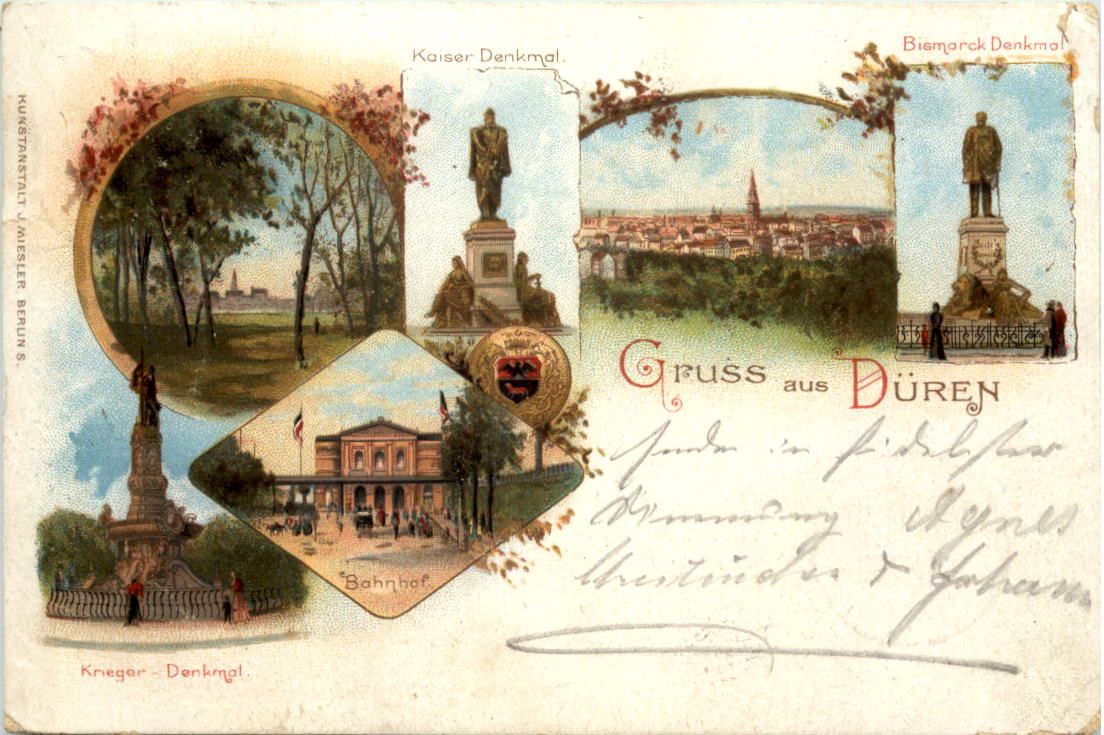 Kaiser Denkmal.
Bismarck Denkmal
KUNSTANSTALT J. MIESLER. BERLIN S.
GRUSS AUS DÜREN
Bahnhof.
Krieger - Denkmal.
in fidelster
Stimmung Agnes
& Johann